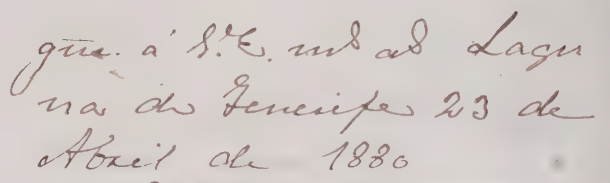 gūe. á S.E. ms as Lagu
na de Tenerife 23 de
Abril de 1880